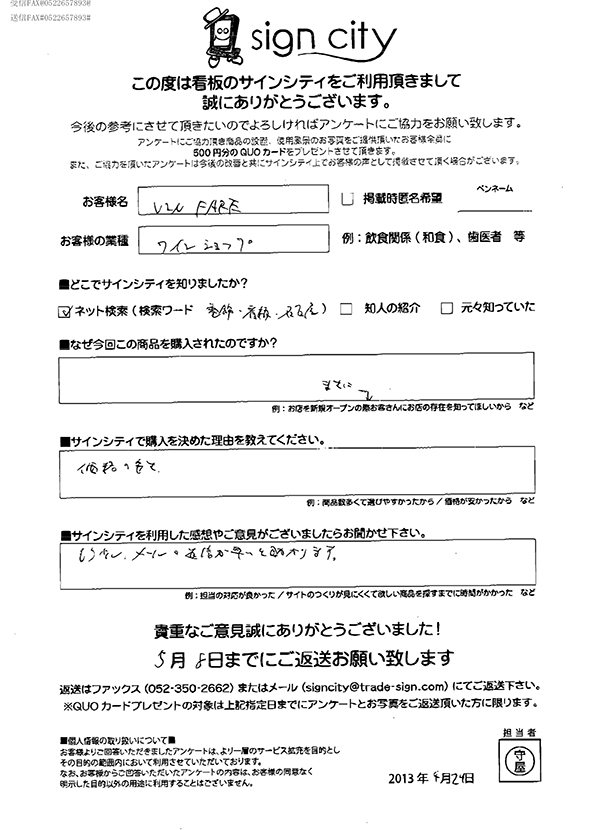 受信FAX#0522657893#
送信FAX#0522657893#
sign city
この度は看板のサインシティをご利用頂きまして
誠にありがとうございます。
今後の参考にさせて頂きたいのでよろしければアンケートにご協力をお願い致します。
アンケートにご協力頂き商品の設置、使用風景のお写真をご提供頂いたお客様全員に
500円分のQUOカードをプレゼントさせて頂きます。
また、ご協力を頂いたアンケートは今後の改善と共にサインシティ上でお客様の声として掲載させて頂く場合がございます。
お客様名 VIN FARE 掲載時匿名希望 ペンネーム
お客様の業種 ワインショップ 例：飲食関係（和食）、歯医者 等
■どこでサインシティを知りましたか？
ネット検索（検索ワード 看板・名古屋） 知人の紹介 元々知っていた
■なぜ今回この商品を購入されたのですか？
まさに
例：お店を新規オープンの際お客さんにお店の存在を知ってほしいから など
■サインシティで購入を決めた理由を教えてください。
価格
例：商品数多くて選びやすかったから / 価格が安かったから など
■サインシティを利用した感想やご意見がございましたらお聞かせ下さい。
メールの返信が早いと助かります。
例：担当の対応が良かった / サイトのつくりが見にくくて欲しい商品を探すまでに時間がかかった など
貴重なご意見誠にありがとうございました！
5月8日までにご返送お願い致します
返送はファックス（052-350-2662）またはメール（signcity@trade-sign.com）にてご返送下さい。
※QUOカードプレゼントの対象は上記指定日までにアンケートとお写真をご返送頂いた方に限ります。
■個人情報の取り扱いについて■
お客様よりご回答いただきましたアンケートは、より一層のサービス拡充を目的とし
その目的の範囲内において利用させていただいております。
なお、お客様からご回答いただいたアンケートの内容は、お客様の同意なく
明示した目的以外の用途に利用することはございません。
担当者
守屋
2013年4月24日